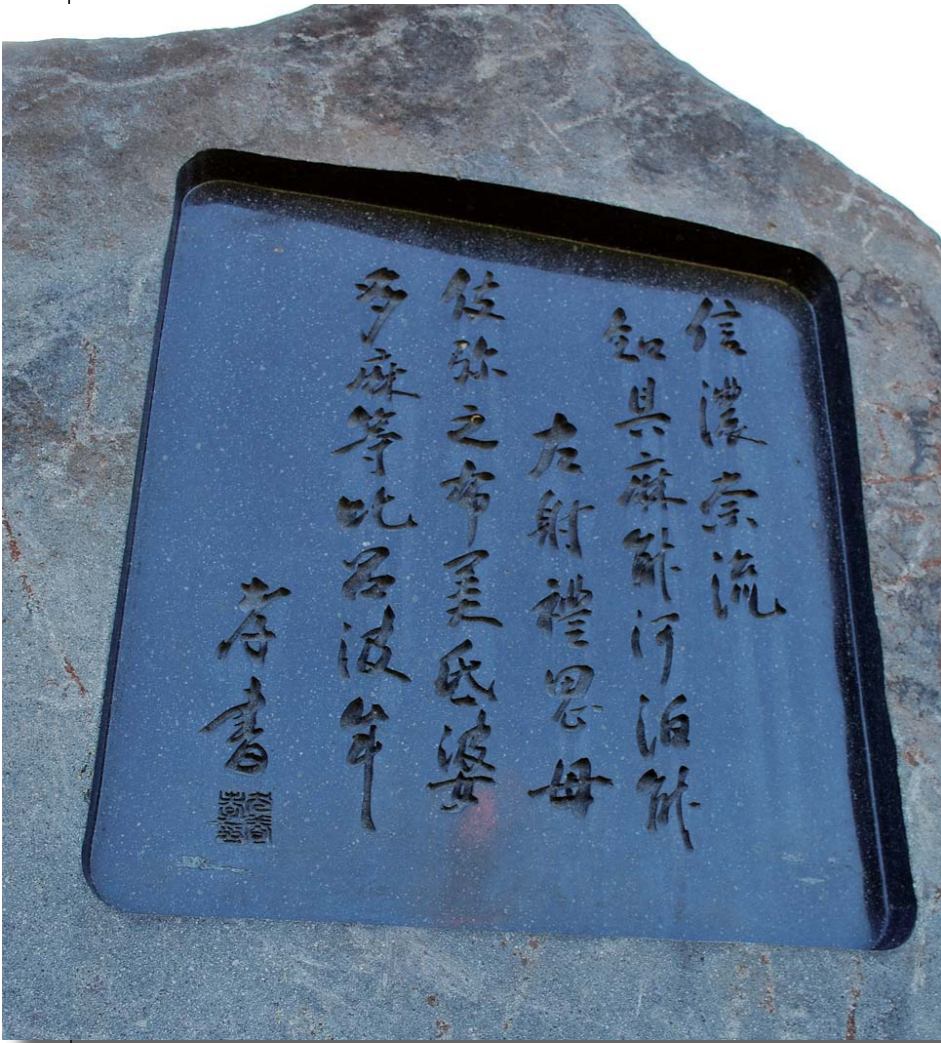 信濃奈流
知具麻能河泊能
左射禮思母
伎弥之布美氐婆
多麻等比呂波牟
孝書